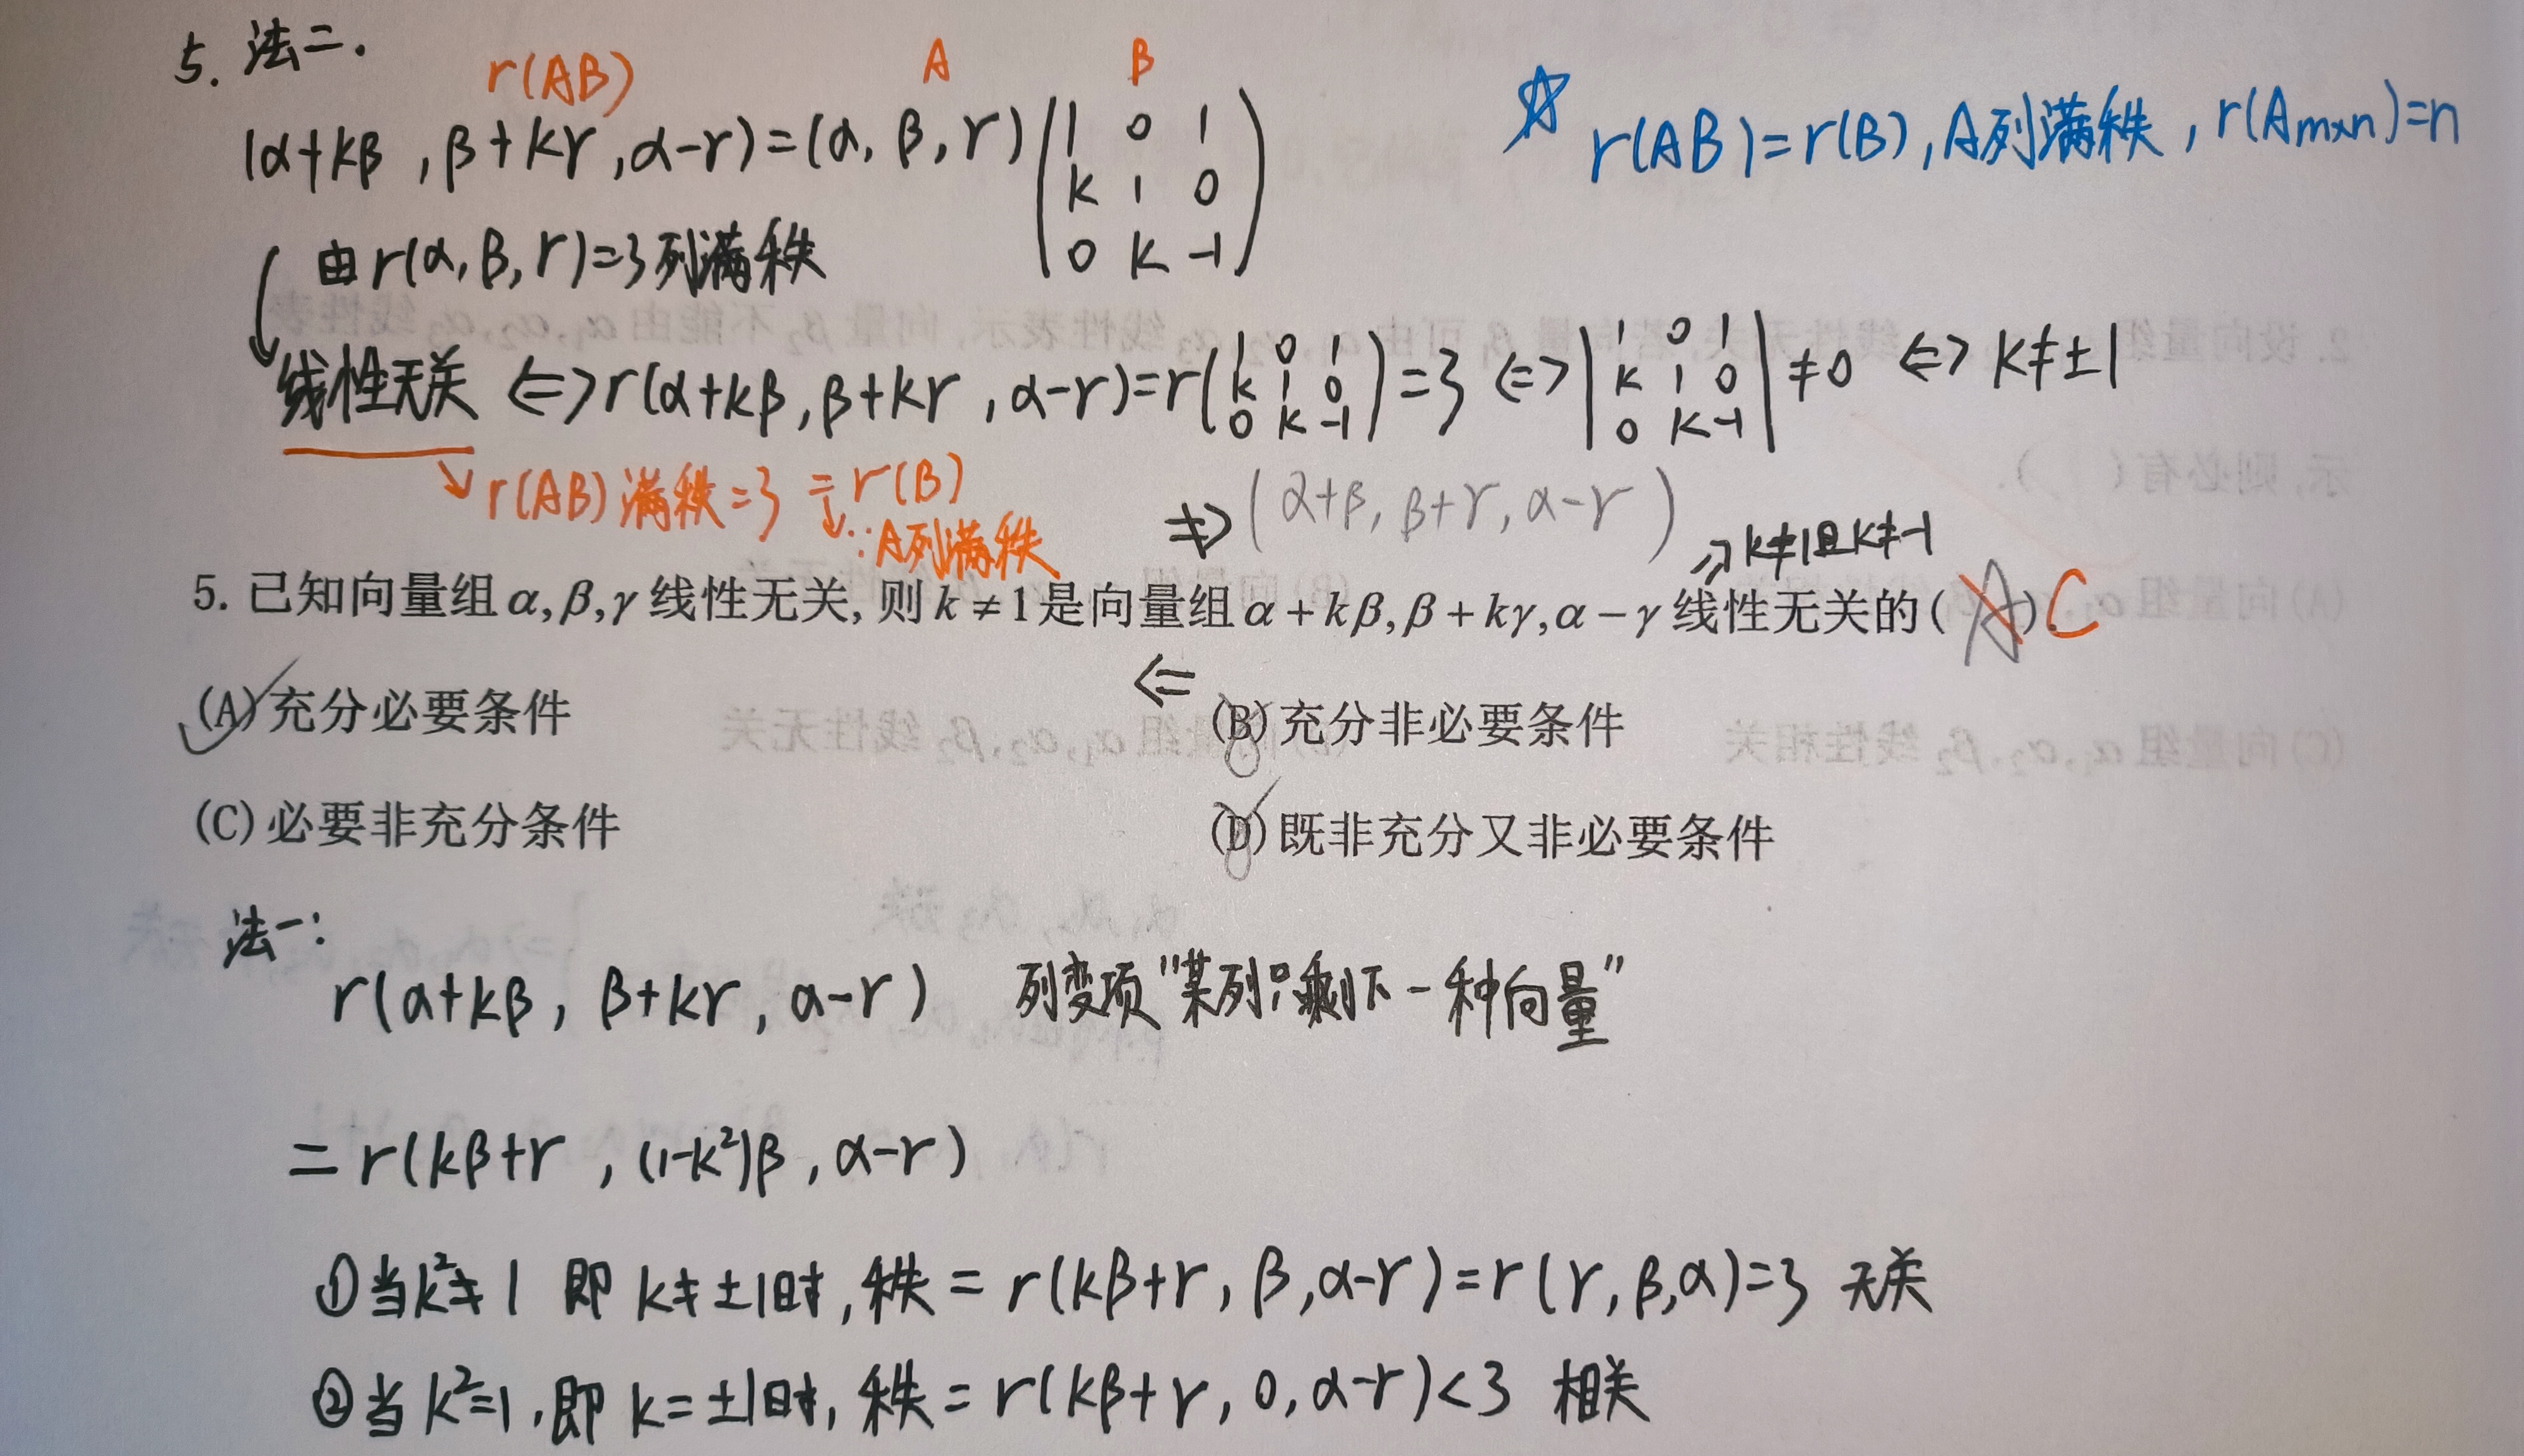 5. 法二.
r(AB) A B
(α+kβ, β+kγ, α-γ)=(α, β, γ)(1 0 1
k 1 0
0 k -1)
☆ r(AB)=r(B), A列满秩, r(Am×n)=n
由r(α, β, γ)=3列满秩
线性无关 <=> r(α+kβ, β+kγ, α-γ)=r(1 0 1 k 1 0 0 k -1)=3 <=> |1 0 1 k 1 0 0 k -1|≠0 <=> k≠±1
r(AB)满秩=3 = r(B)
∵A列满秩
≠> (α+β, β+γ, α-γ)
k≠1且k≠-1
5. 已知向量组α,β,γ线性无关, 则k≠1是向量组α+kβ,β+kγ,α-γ线性无关的( A ). C
<=
(A)充分必要条件 (B)充分非必要条件
(C)必要非充分条件 (D)既非充分又非必要条件
法一:
r(α+kβ, β+kγ, α-γ) 列变项"某列只剩下一种向量"
= r(kβ+γ, (1-k²)β, α-γ)
①当k²≠1 即 k≠±1时, 秩= r(kβ+γ, β, α-γ)=r(γ, β, α)=3 无关
②当k²=1, 即 k=±1时, 秩= r(kβ+γ, 0, α-γ)<3 相关